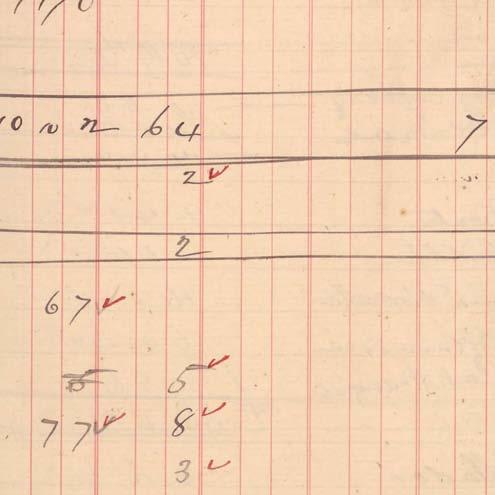 64 7
2
2
67
5 5
77 8
3